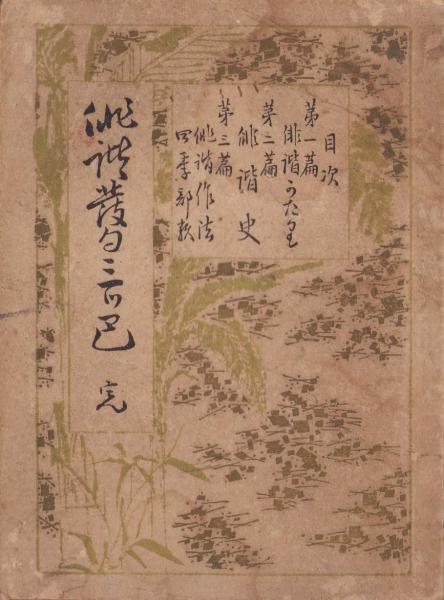 目次
第一篇
俳諧
第二篇
俳諧史
第三篇
俳諧作法
四季部類
俳諧發句
完